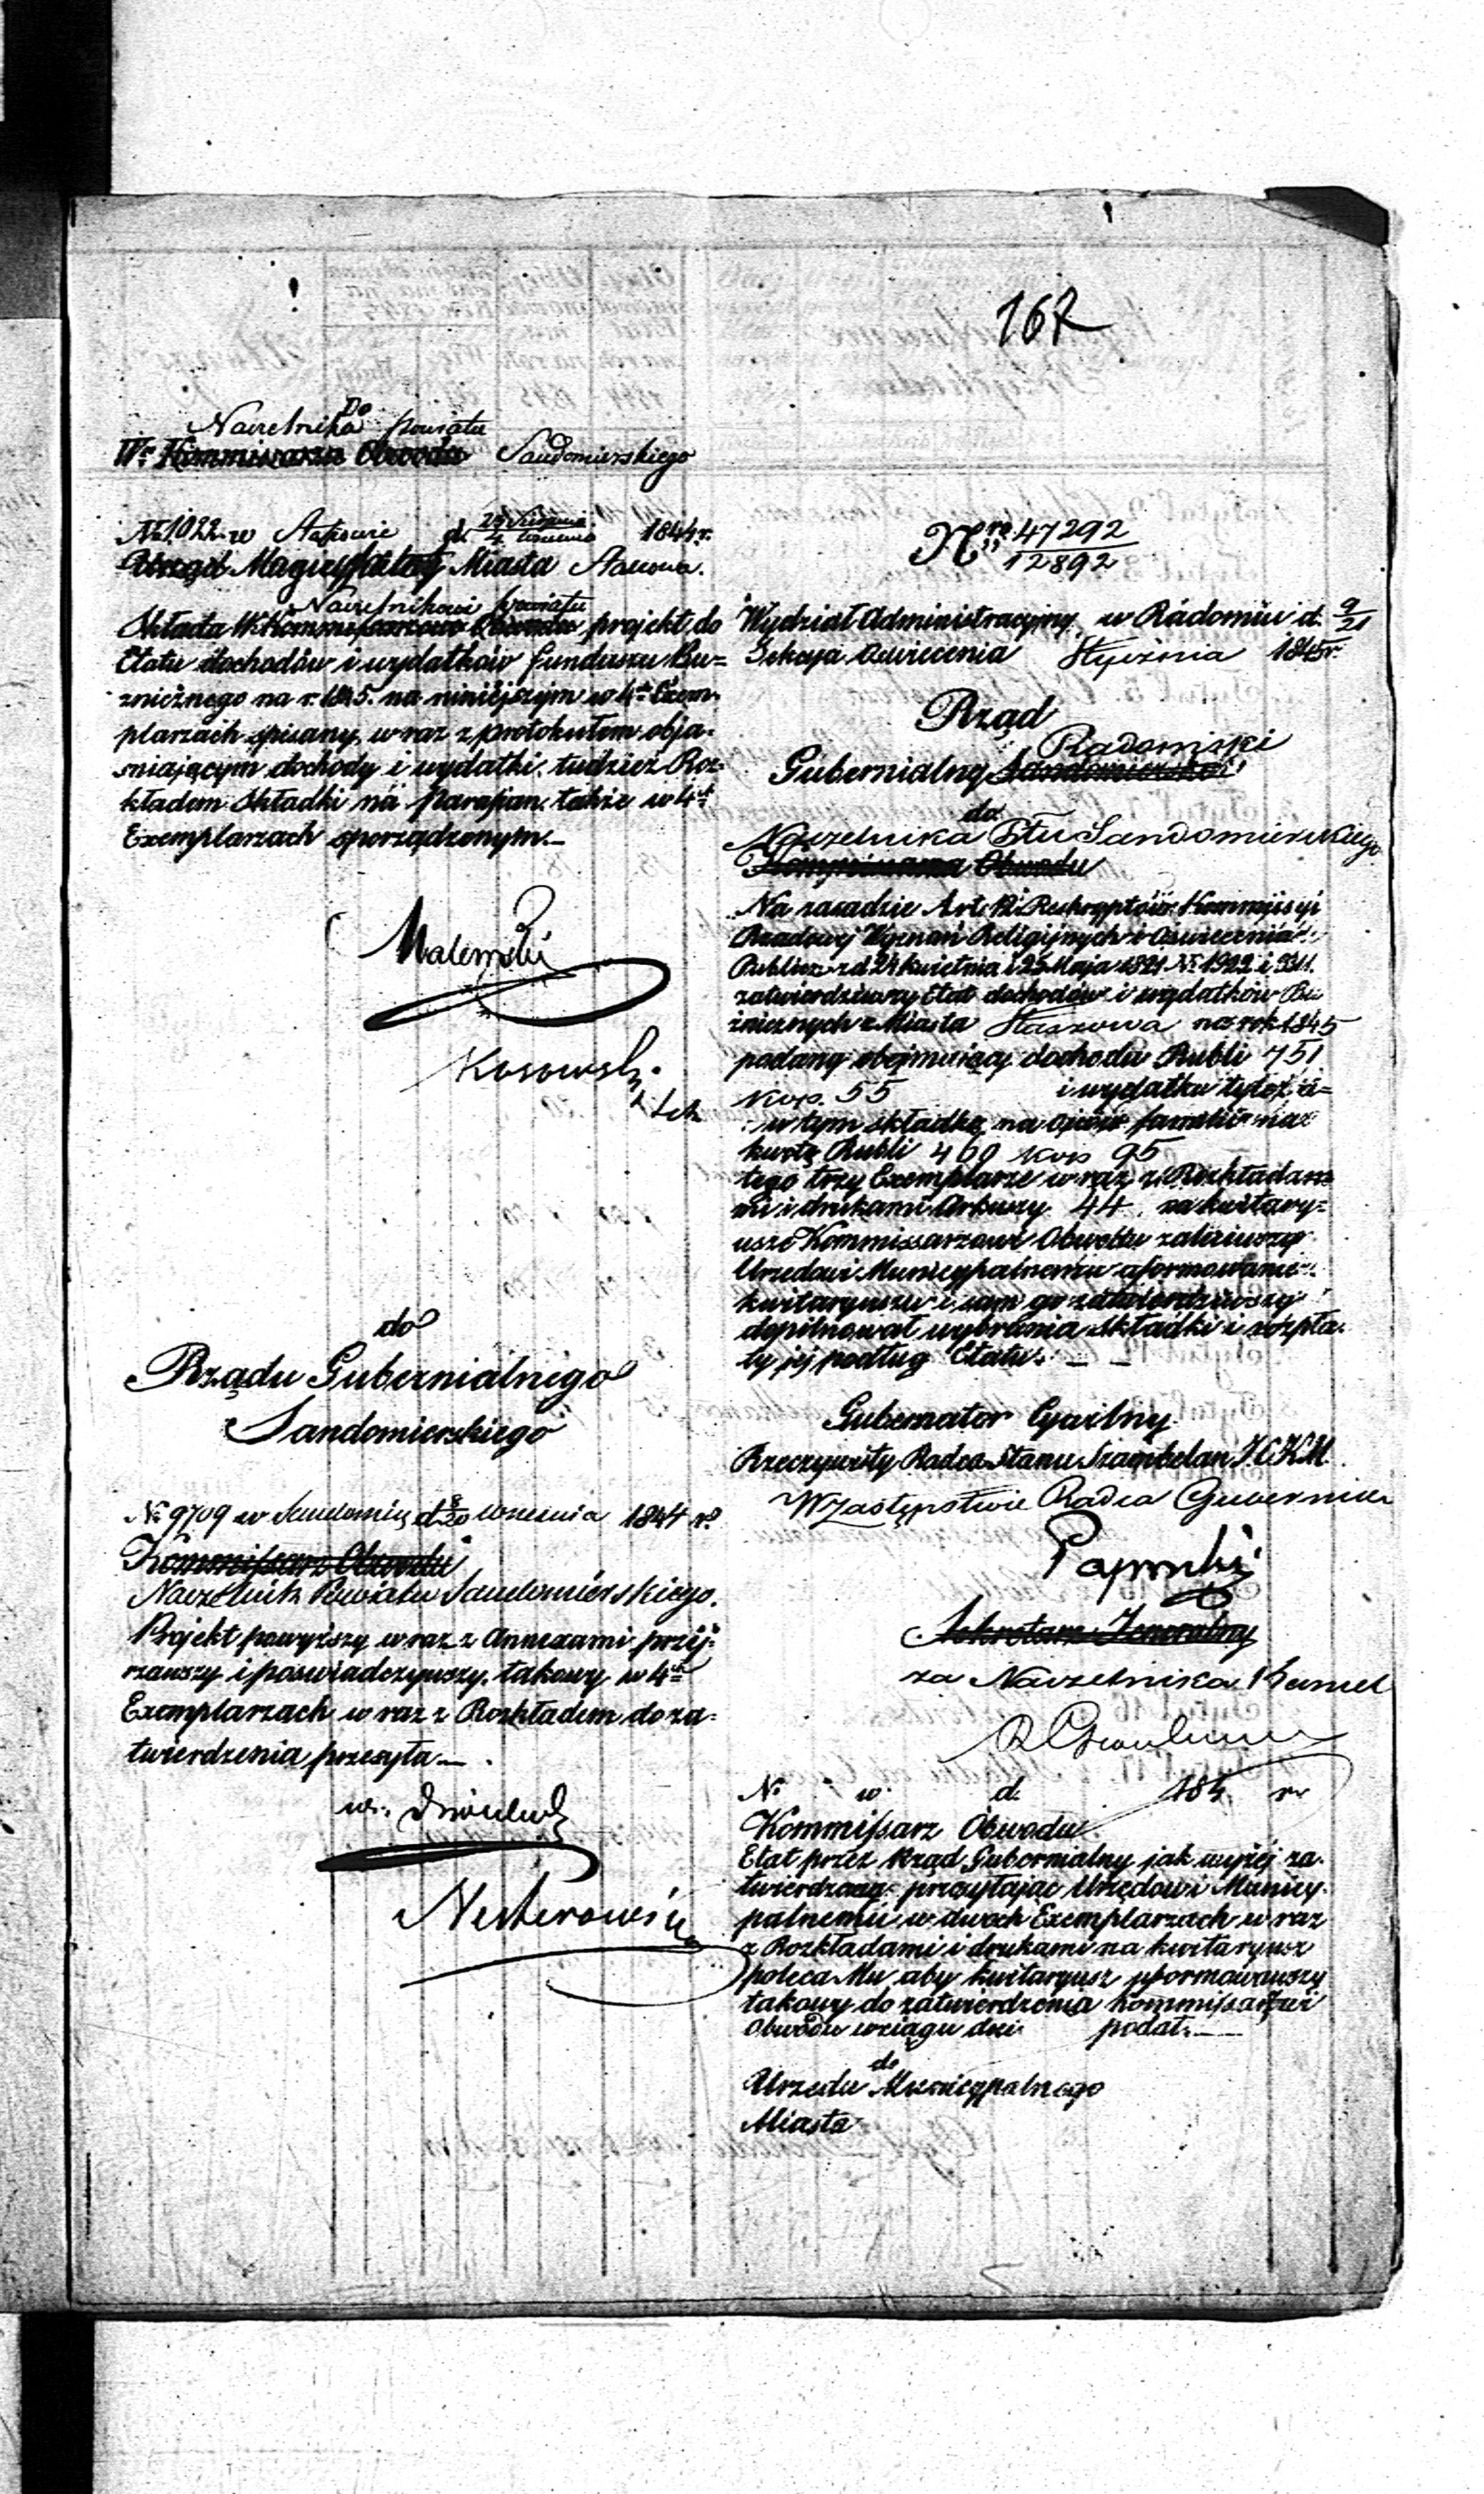 167
Do
Naczelnika Powiatu
W. Kommissarza Obwodu Sandomierskiego
No 1022 w Staszowie d. 1844 r.
Urząd Magistrat Miasta Staszowa.
Naczelnikowi Powiatu
Składa W. Kommissarzowi Obwodu projekt do
Etatu dochodów i wydatków funduszu Bu=
znicznego na r. 1845. na niniejszym w 4ch Exem-
plarzach spisany, wraz z protokułem obja-
sniającym dochody i wydatki, tudzież Roz-
kładem Składki na Parafian, także w 4ch
Exemplarzach sporządzonym.—
Malemski
Kosowski
do
Rządu Gubernialnego
Sandomierskiego
No 9709 w Sandomirzu d. 8/20 Września 1844 r.
Kommissarz Obwodu
Naczelnik Powiatu Sandomierskiego.
Projekt powyższy wraz z Annexami przej-
rzawszy i poswiadczywszy, takowy w 4ch
Exemplarzach wraz z Rozkładem do za-
twierdzenia przesyła—
Nesterowicz
Nro 47292
12892
Wydział Administracyjny w Radomiu d. 9/21
Sekcya Oswiecenia Stycznia 1845 r.
Rząd
Radomski
Gubernialny Sandomierski
do
Naczelnika Ptu Sandomierskiego
Kommissarza Obwodu
Na zasadzie Art. 12 Reskryptów Kommissyi
Rządowej Wyznań Religijnych i Oswiecenia
Publicz: z d 24 Kwietnia i 25 Maja 1821 No 1922 i
zatwierdziwszy Etat dochodów i wydatków Bu
żnicznych z Miasta Staszowa na rok 1845
podany obejmujący dochodu Rubli 751
kop. 55 i wydatku tyleż, a=
w tym składkę na ojców familii na
kwotę Rubli 460 kop 95
tego trzy Exemplarze wraz z Rozkładam
mi i drukami Arkuszy 44. na kwitary-
usze Kommissarzowi Obwodu zaleciwszy
Urzędowi Municypalnemu uformowanie
kwitaryuszu i sam go zatwierdziwszy
dopilnował wybrania składki i rozpła-
ty jej podług Etatu. — —
Gubernator Cywilny
Rzeczywisty Radca Stanu Szambelan J. C. K. M.
W Zastępstwie Radca Gubernialny
Paprocki
Sekretarz Jeneralny
za Naczelnika Kancel
No w d. 184 r.
Kommissarz Obwodu
Etat przez Rząd Gubernialny jak wyżej za-
twierdzony przesyłając Urzędowi Municy-
palnemu w dwóch Exemplarzach w raz
z Rozkładami i drukami na kwitaryusz
poleca Mu aby kwitaryusz uformowawszy
takowy do zatwierdzenia Kommissarzowi
Obwodu wciągu dni podał.——
do
Urzędu Municypalnego
Miasta